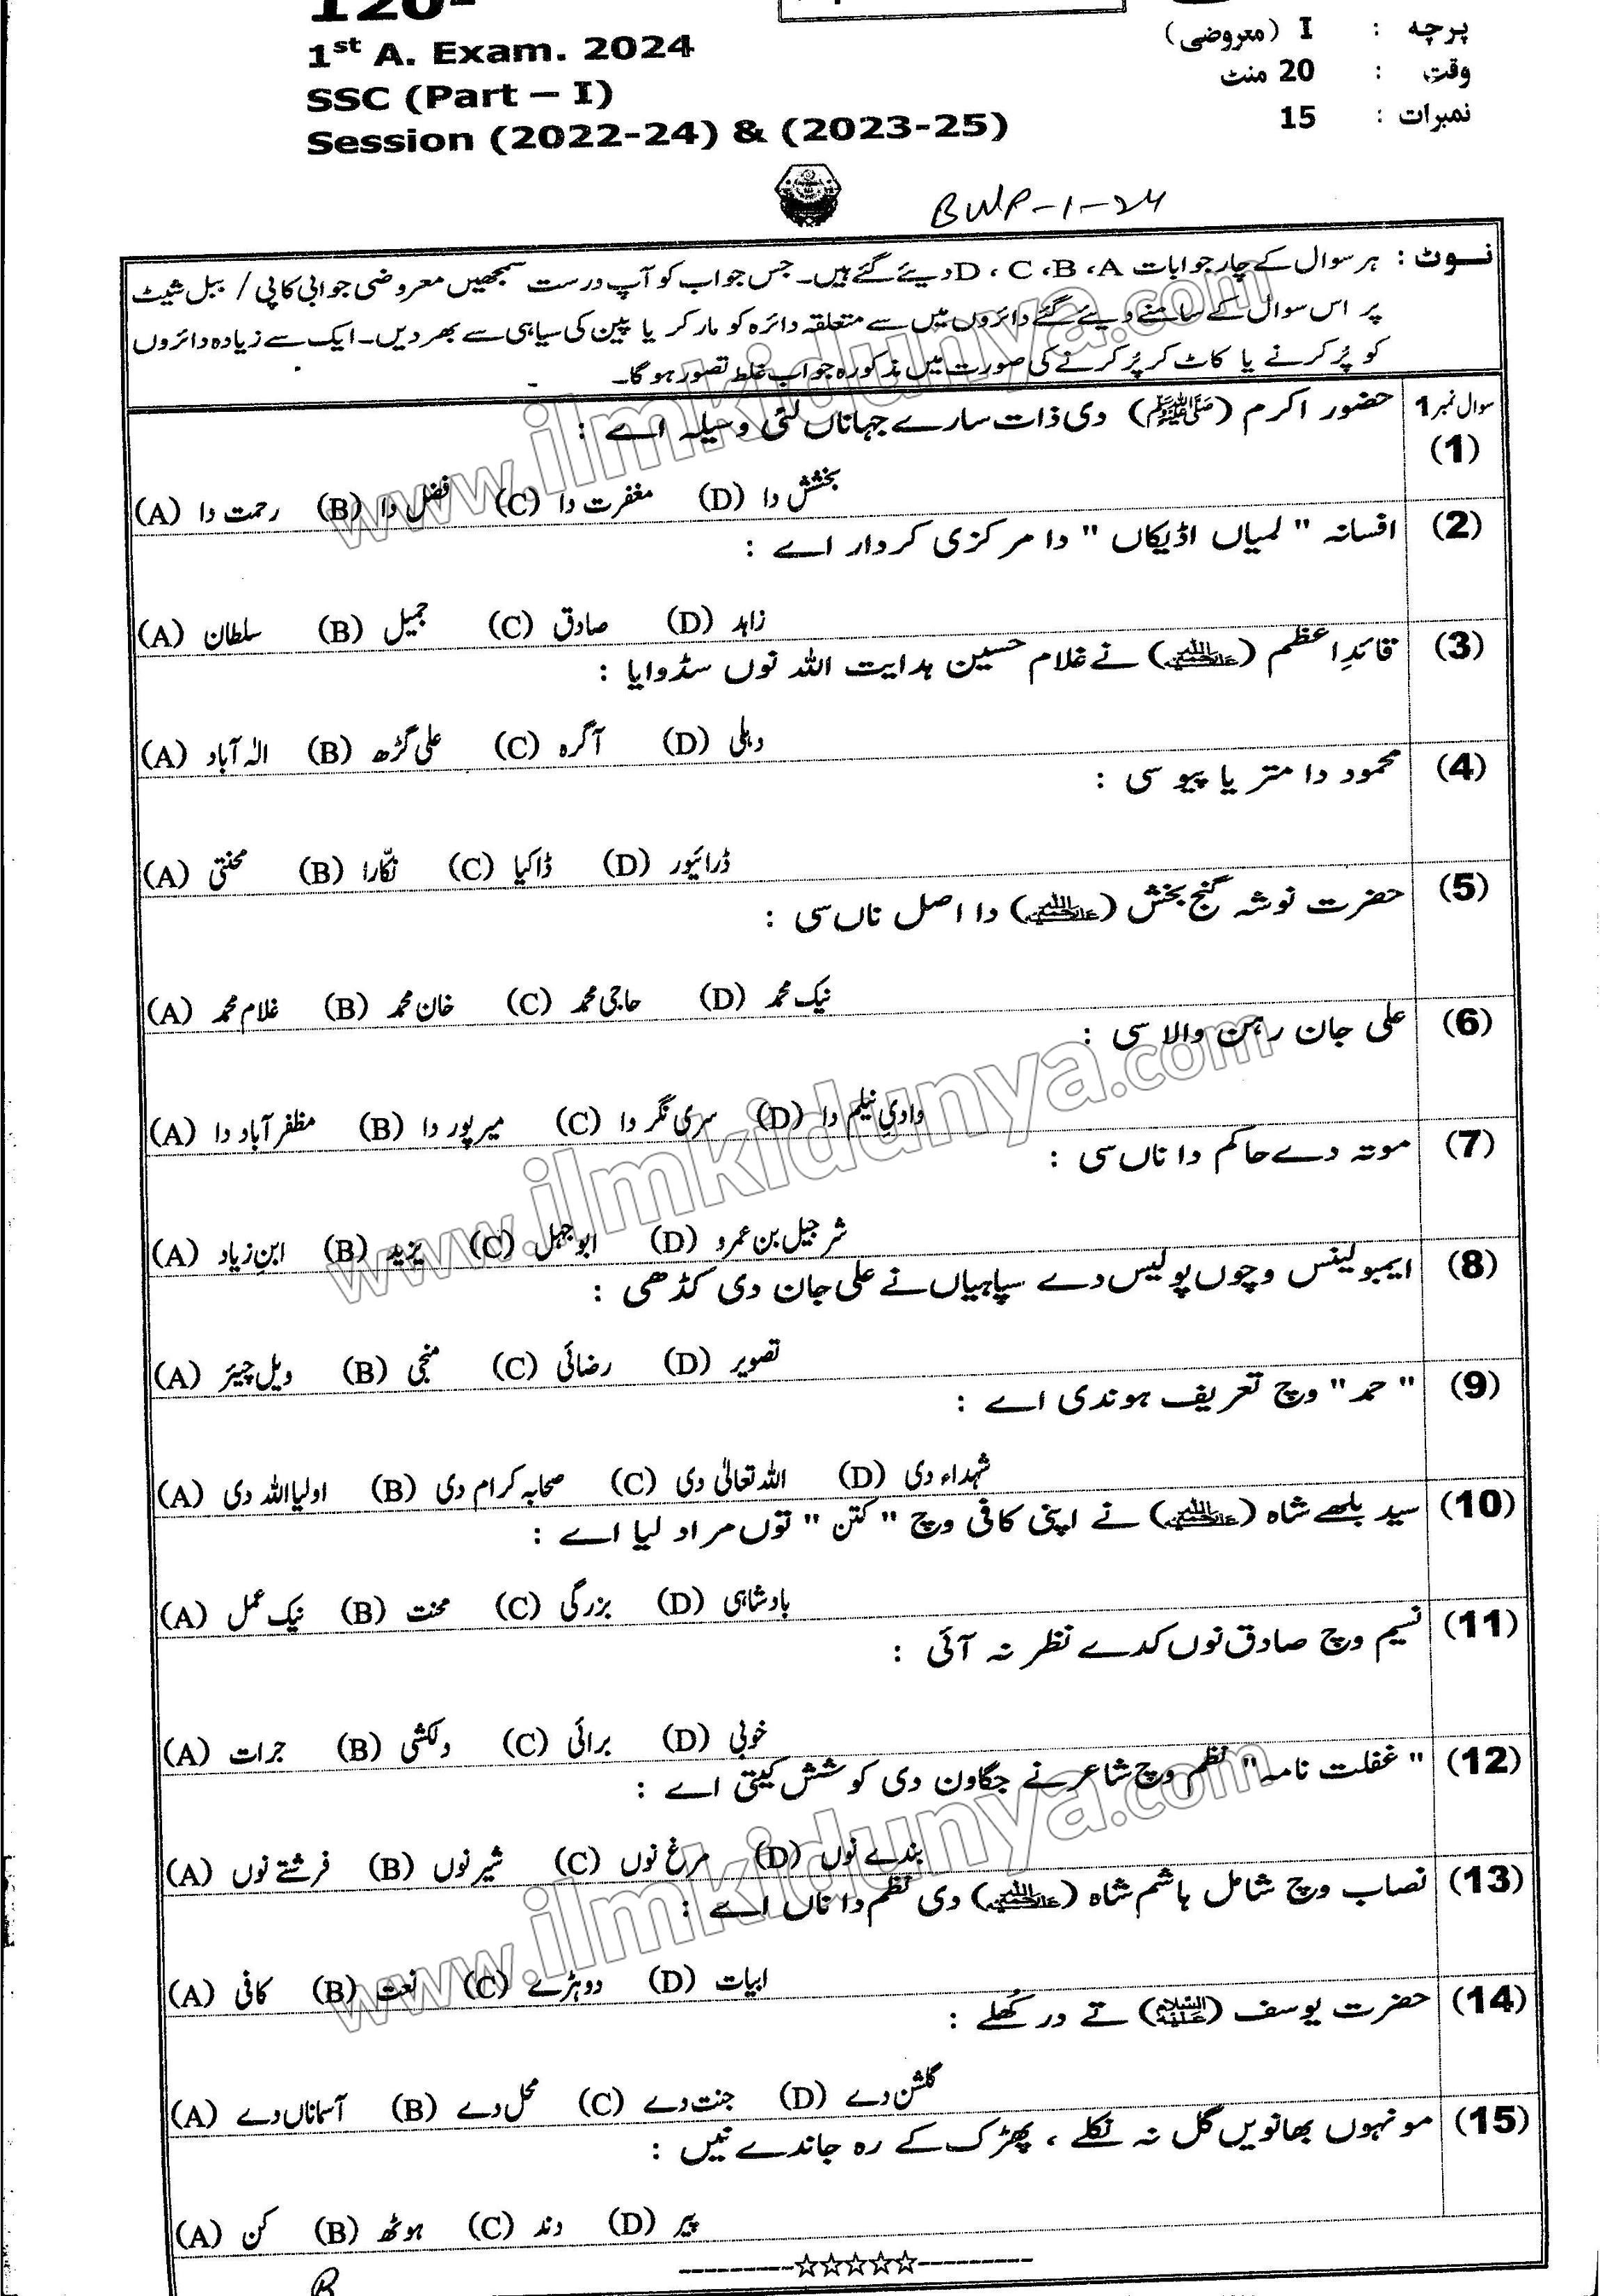 120-
1st A. Exam. 2024
SSC (Part – I)
Session (2022-24) & (2023-25)
پرچہ : I (معروضی)
وقت : 20 منٹ
نمبرات : 15
BWP-1-24
نوٹ : ہر سوال کے چار جوابات A، B، C، D دیئے گئے ہیں۔ جس جواب کو آپ درست سمجھیں معروضی جوابی کاپی / ببل شیٹ
پر اس سوال کے سامنے دیئے گئے دائروں میں سے متعلقہ دائرہ کو مارکر یا پین کی سیاہی سے بھر دیں۔ ایک سے زیادہ دائروں
کو پُر کرنے یا کاٹ کر پُر کرنے کی صورت میں مذکورہ جواب غلط تصور ہو گا۔
سوال نمبر 1 حضور اکرم (ﷺ) دی ذات سارے جہاناں لئی وسیلہ اے :
(1)
(A) رحمت دا (B) فضل دا (C) مغفرت دا (D) بخشش دا
(2) افسانہ " لمیاں اڈیکاں " دا مرکزی کردار اے :
(A) سلطان (B) جمیل (C) صادق (D) زاہد
(3) قائدِاعظم (رحمۃ اللہ علیہ) نے غلام حسین ہدایت اللہ نوں سڈوایا :
(A) الہٰ آباد (B) علی گڑھ (C) آگرہ (D) دہلی
(4) محمود دا متر یا پیو سی :
(A) محنتی (B) نکّارا (C) ڈاکیا (D) ڈرائیور
(5) حضرت نوشہ گنج بخش (رحمۃ اللہ علیہ) دا اصل ناں سی :
(A) غلام محمد (B) خان محمد (C) حاجی محمد (D) نیک محمد
(6) علی جان رہن والا سی :
(A) مظفر آباد دا (B) میر پور دا (C) سری نگر دا (D) وادیِ نیلم دا
(7) موتہ دے حاکم دا ناں سی :
(A) ابنِ زیاد (B) یزید (C) ابو جہل (D) شرجیل بن عمرو
(8) ایمبولینس وچوں پولیس دے سپاہیاں نے علی جان دی کڈھی :
(A) ویل چیئر (B) منجی (C) رضائی (D) تصویر
(9) " حمد " وچ تعریف ہوندی اے :
(A) اولیااللہ دی (B) صحابہ کرام دی (C) اللہ تعالیٰ دی (D) شہداء دی
(10) سید بلھے شاہ (رحمۃ اللہ علیہ) نے اپنی کافی وچ " کتن " توں مراد لیا اے :
(A) نیک عمل (B) محنت (C) بزرگی (D) بادشاہی
(11) نسیم وچ صادق نوں کدے نظر نہ آئی :
(A) جرات (B) دلکشی (C) برائی (D) خوبی
(12) " غفلت نامہ " نظم وچ شاعر نے جگاون دی کوشش کیتی اے :
(A) فرشتے نوں (B) شیر نوں (C) مرغ نوں (D) بندے نوں
(13) نصاب وچ شامل ہاشم شاہ (رحمۃ اللہ علیہ) دی نظم دا ناں اے :
(A) کافی (B) نعت (C) دوہڑے (D) ابیات
(14) حضرت یوسف (علیہ السلام) تے در کُھلے :
(A) آسماناں دے (B) محل دے (C) جنت دے (D) گلشن دے
(15) مونہوں بھانویں گل نہ نکلے ، پھڑک کے رہ جاندے نیں :
(A) کن (B) ہوٹھ (C) دند (D) پیر
---------☆☆☆☆☆---------
www.ilmkidunya.com
www.ilmkidunya.com
www.ilmkidunya.com